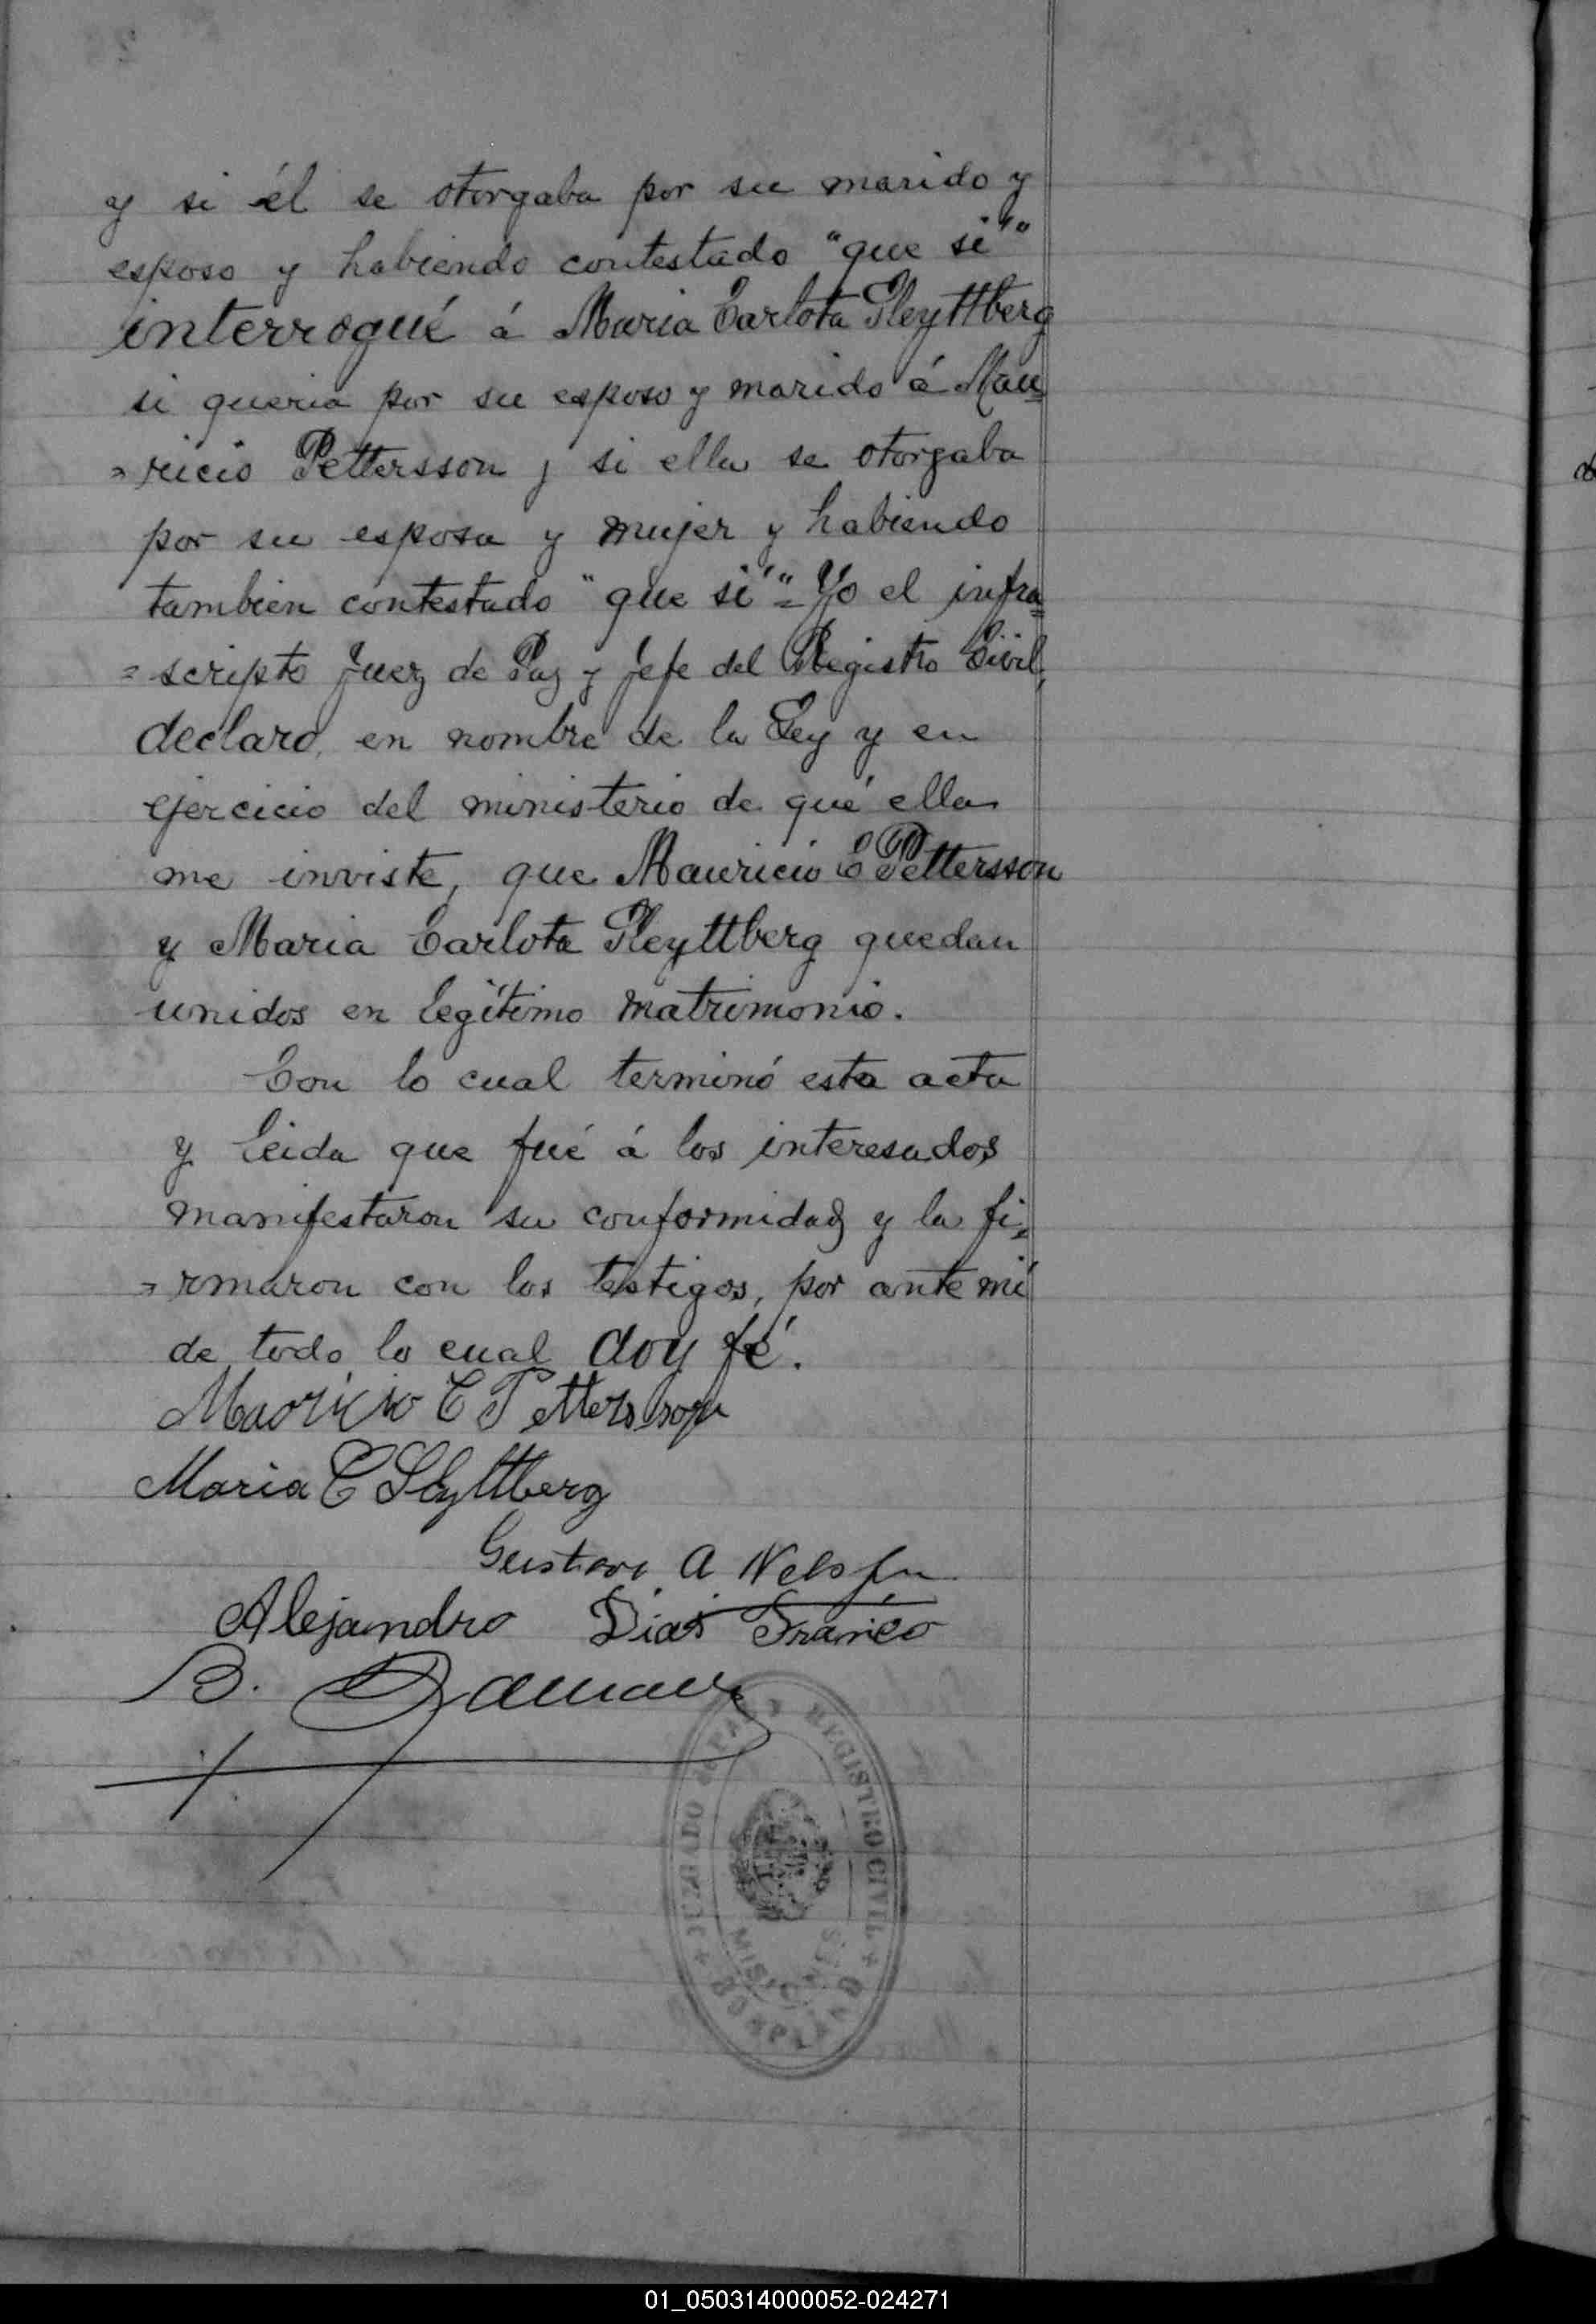 y si él se otorgaba por su marido y
esposo y habiendo contestado "que si"
interrogué á Maria Carlota Fleyttberg
si queria por su esposo y marido á Mau=
=ricio Pettersson y si ella se otorgaba
por su esposa y mujer y habiendo
tambien contestado "que si"= Yo el infra=
=scripto Juez de Paz y Jefe del Registro Civil,
declaro, en nombre de la Ley y en
ejercicio del ministerio de que ella
me inviste, que Mauricio C Pettersson
y Maria Carlota Fleyttberg quedan
unidos en legítimo matrimonio.
Con lo cual terminó esta acta
y leida que fué á los interesados
manifestaron su conformidad y la fi=
=rmaron con los testigos, por ante mí
de todo lo cual doy fé.
Mauricio C Pettersson
Maria C
Gustavo A Nelson
Alejandro Dias Franco
B.
JUZGADO DE PAZ Y REGISTRO CIVIL
MISIONES
BONPLAND
01_050314000052-024271